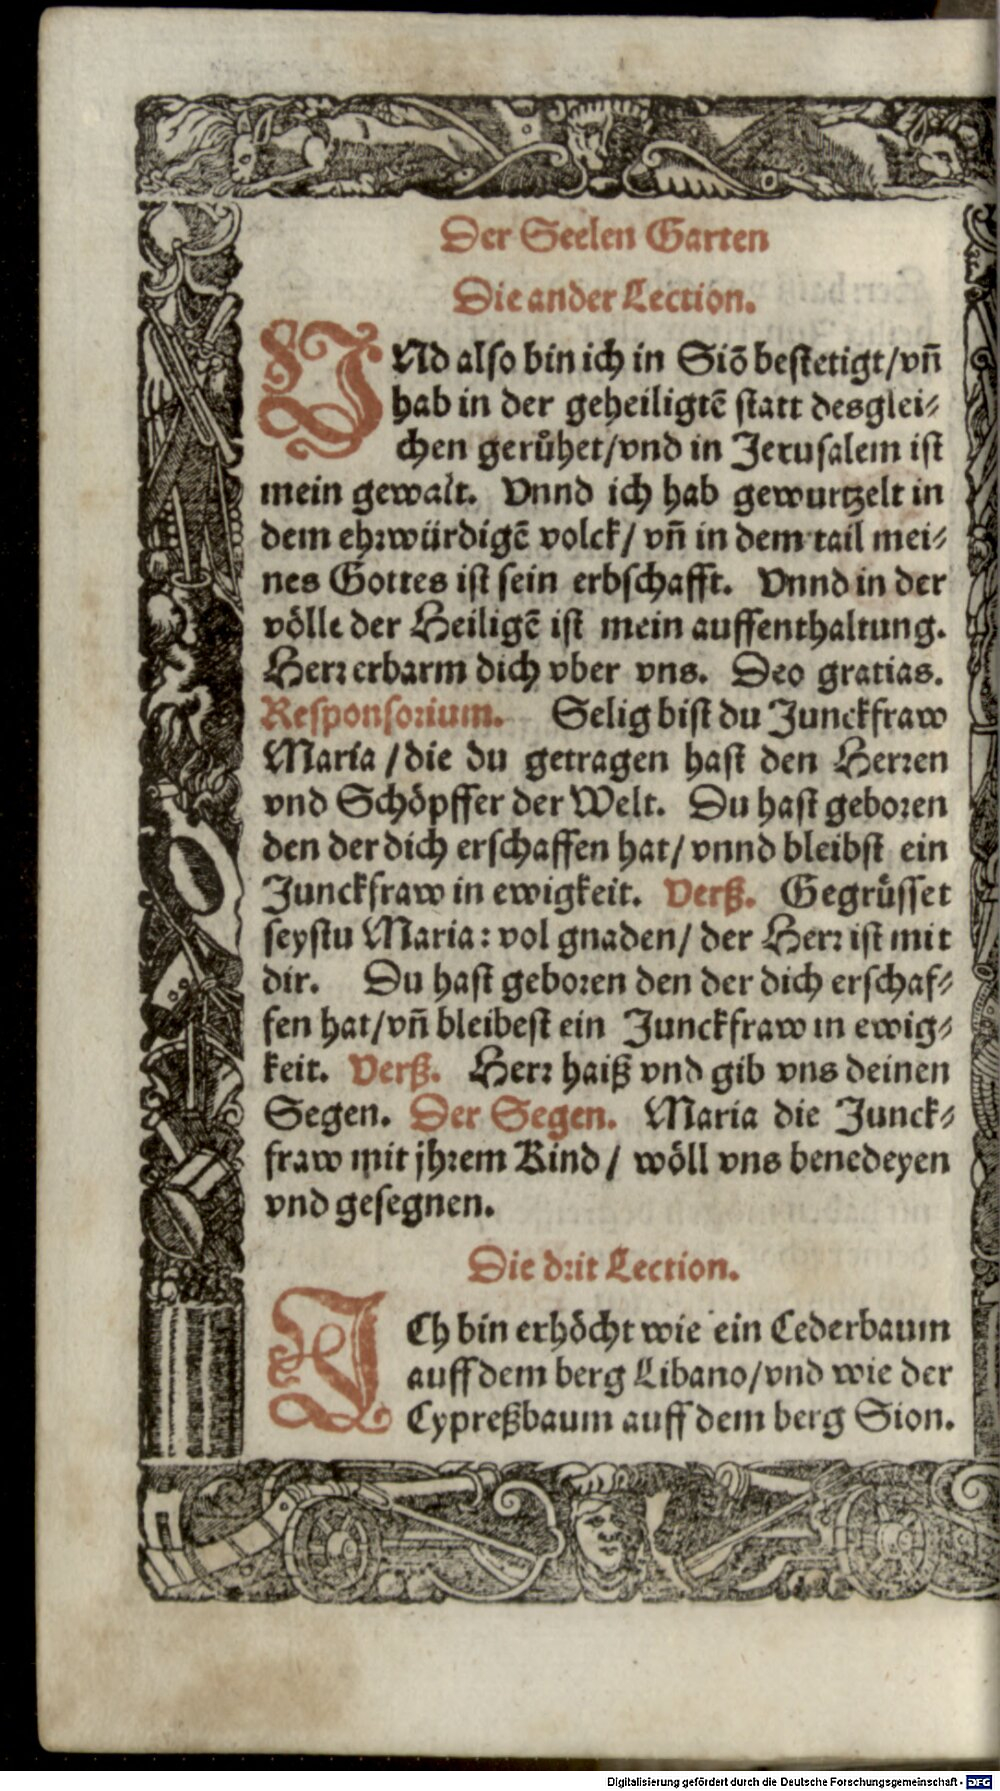 Der Seelen Garten
Die ander Lection.
VNd also bin ich in Siō bestetigt/vñ
hab in der geheiligtē statt desglei⸗
chen gerůhet/vnd in Jerusalem ist
mein gewalt. Vnnd ich hab gewurtzelt in
dem ehrwürdigē volck/ vñ in dem tail mei⸗
nes Gottes ist sein erbschafft. Vnnd in der
völle der Heiligē ist mein auffenthaltung.
Herr erbarm dich vber vns. Deo gratias.
Responsorium. Selig bist du Junckfraw
Maria /die du getragen hast den Herren
vnd Schöpffer der Welt. Du hast geboren
den der dich erschaffen hat/ vnnd bleibst ein
Junckfraw in ewigkeit. Verß. Gegrüsset
seystu Maria: vol gnaden/ der Herr ist mit
dir. Du hast geboren den der dich erschaf⸗
fen hat/vñ bleibest ein Junckfraw in ewig⸗
keit. Verß. Herr haiß vnd gib vns deinen
Segen. Der Segen. Maria die Junck⸗
fraw mit jhrem Kind / wöll vns benedeyen
vnd gesegnen.
Die drit Lection.
ICh bin erhöcht wie ein Cederbaum
auff dem berg Libano/vnd wie der
Cypreßbaum auff dem berg Sion.
Digitalisierung gefördert durch die Deutsche Forschungsgemeinschaft - DFG